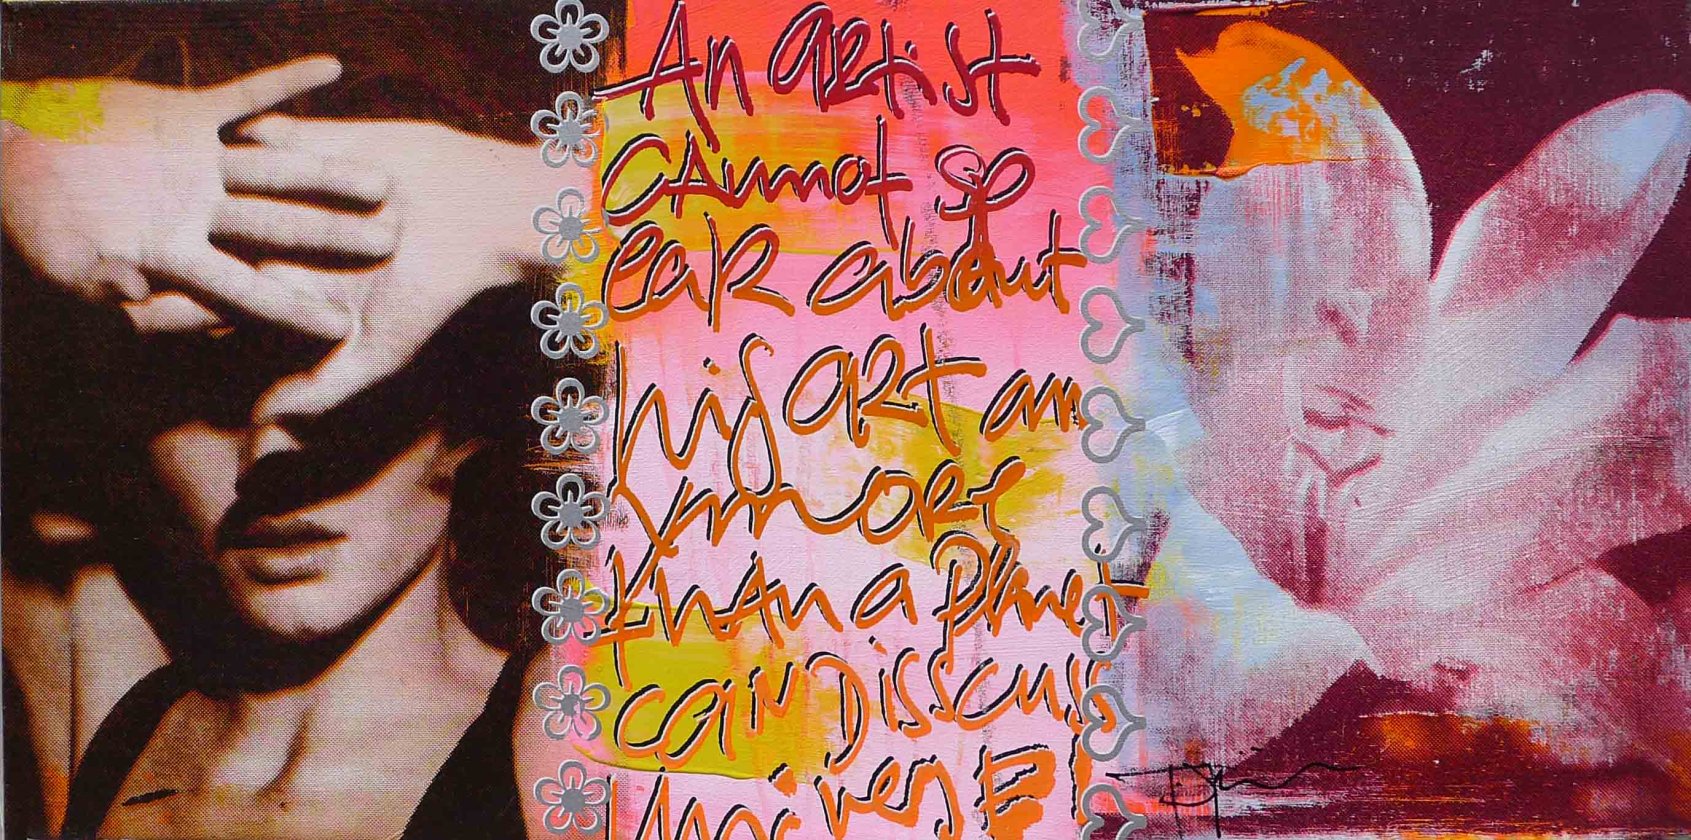 An artist
cannot sp
eak about
his art an
ymore
than a planet
can Disscuss
UniversE